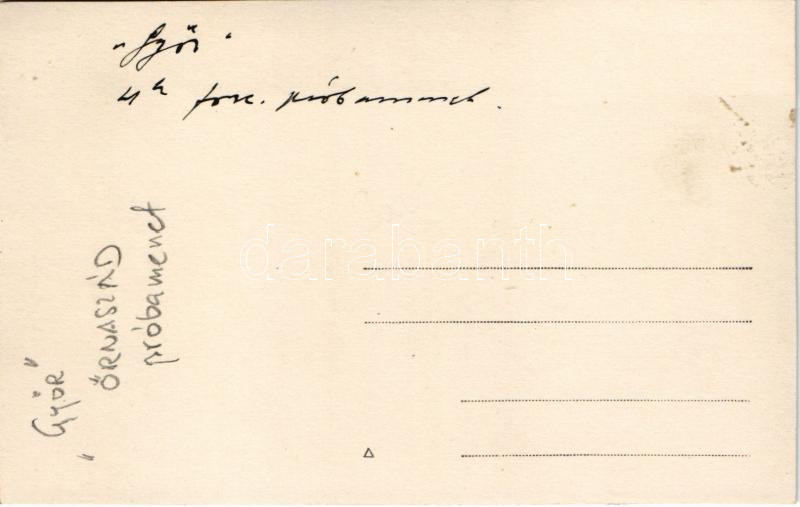 „Győr"
4h forc. próbamenet.
„Győr"
ŐRNASZÁD
próbamenet
darabanth